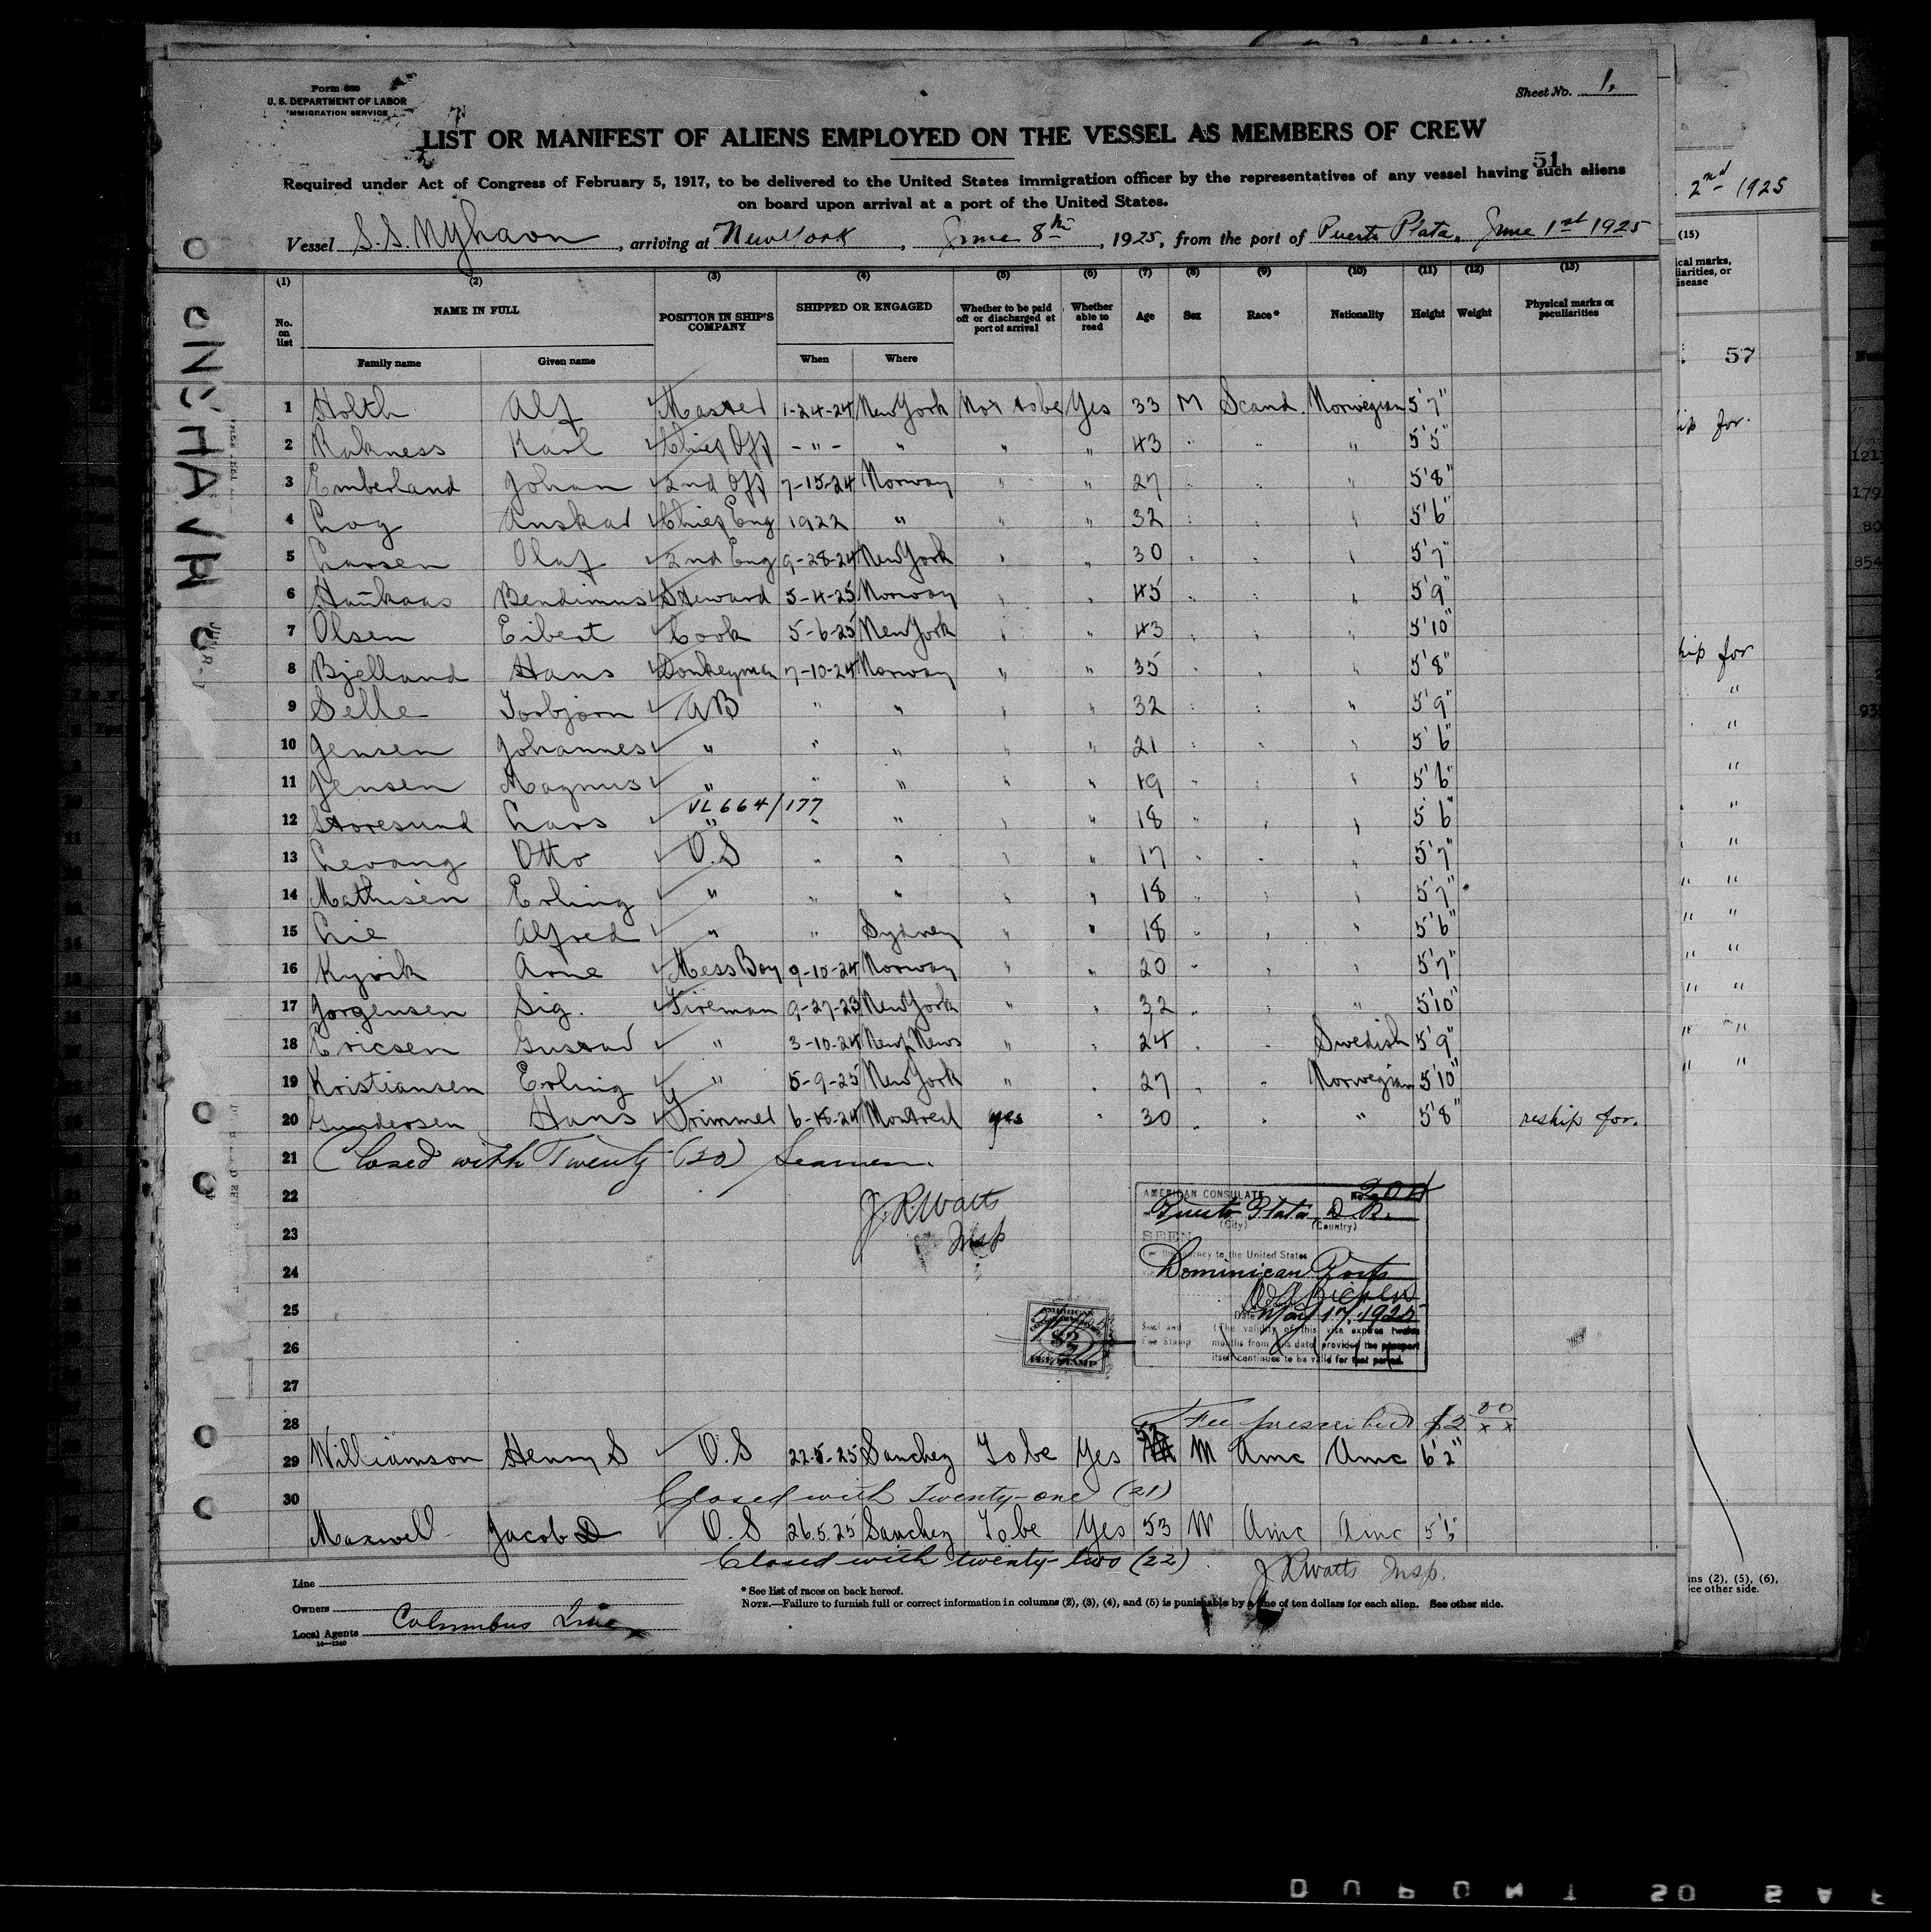 Form 680
U. S. DEPARTMENT OF LABOR
IMMIGRATION SERVICE
Sheet No. 1.
LIST OR MANIFEST OF ALIENS EMPLOYED ON THE VESSEL AS MEMBERS OF CREW
51
Required under Act of Congress of February 5, 1917, to be delivered to the United States immigration officer by the representatives of any vessel having such aliens
on board upon arrival at a port of the United States.
Vessel S.S. Nyhavn, arriving at New York, June 8th, 1925, from the port of Puerto Plata, June 1st 1925
(1) (2) (3) (4) (5) (6) (7) (8) (9) (10) (11) (12) (13)
No. on list NAME IN FULL POSITION IN SHIP'S COMPANY SHIPPED OR ENGAGED Whether to be paid off or discharged at port of arrival Whether able to read Age Sex Race* Nationality Height Weight Physical marks or peculiarities
Family name Given name When Where
1 Holth Alf Master 1-24-24 New York Not to be Yes 33 M Scand. Norwegian 5'7"
2 Rakness Karl Chief Off - " - " " " 43 " " " 5'5"
3 Emberland Johan 2nd Off 7-15-24 Norway " " 27 " " " 5'8"
4 Log Anskar Chief Eng 1922 " " " 32 " " " 5'6"
5 Larsen Olaf 2nd Eng 9-28-24 New York " " 30 " " " 5'7"
6 Haukaas Bendimus Steward 5-4-25 Norway " " 45 " " " 5'9"
7 Olsen Eibert Cook 5-6-25 New York " " 43 " " " 5'10"
8 Bjelland Hans Donkeyman 7-10-24 Norway " " 35 " " " 5'8"
9 Selle Torbjorn AB " " " " 32 " " " 5'9"
10 Jensen Johannes " " " " " 21 " " " 5'6"
11 Jensen Magnus " " " " " 19 " " " 5'6"
VL 664/177
12 Storesund Lars " " " " " 18 " " " 5'6"
13 Levang Otto O.S " " " " 17 " " " 5'7"
14 Mathisen Erling " " " " " 18 " " " 5'7"
15 Lie Alfred " " Sydney " " 18 " " " 5'6"
16 Kyvik Arne Mess Boy 9-10-24 Norway " " 20 " " " 5'7"
17 Jorgensen Sig. Fireman 9-27-23 New York " " 32 " " " 5'10"
18 Ericsen Gustav " 3-10-24 Newp. News " " 24 " " Swedish 5'9"
19 Kristiansen Erling " 5-9-25 New York " " 27 " " Norwegian 5'10"
20 Gundersen Hans Trimmer 6-16-24 Montreal yes " 30 " " " 5'8" reship for.
21 Closed with Twenty (20) Seamen.
22 J. R. Watts
23 Insp
24
25
26
27
AMERICAN CONSULATE No. 204
Puerto Plata, D.R.
(City) (Country)
SEEN
For the journey to the United States
Dominican Ports
Date May 17, 1925
Seal and Fee Stamp
(The validity of this visa expires twelve
months from this date provided the passport
itself continues to be valid for that period.
AMERICAN
$2
FEE STAMP
28 Fee prescribed $2 00
29 Williamson Henry S O.S 22.5.25 Sanchez To be Yes 52 M Amc Amc 6'2"
30 Closed with Twenty-one (21)
Maxwell Jacob D O.S 26.5.25 Sanchez To be Yes 53 M Amc Amc
Closed with twenty-two (22) J R Watts Insp.
Line
Owners
Local Agents Columbus Line
14—1240
* See list of races on back hereof.
NOTE.—Failure to furnish full or correct information in columns (2), (3), (4), and (5) is punishable by a fine of ten dollars for each alien. See other side.
2nd 1925
(15)
57
DUPONT